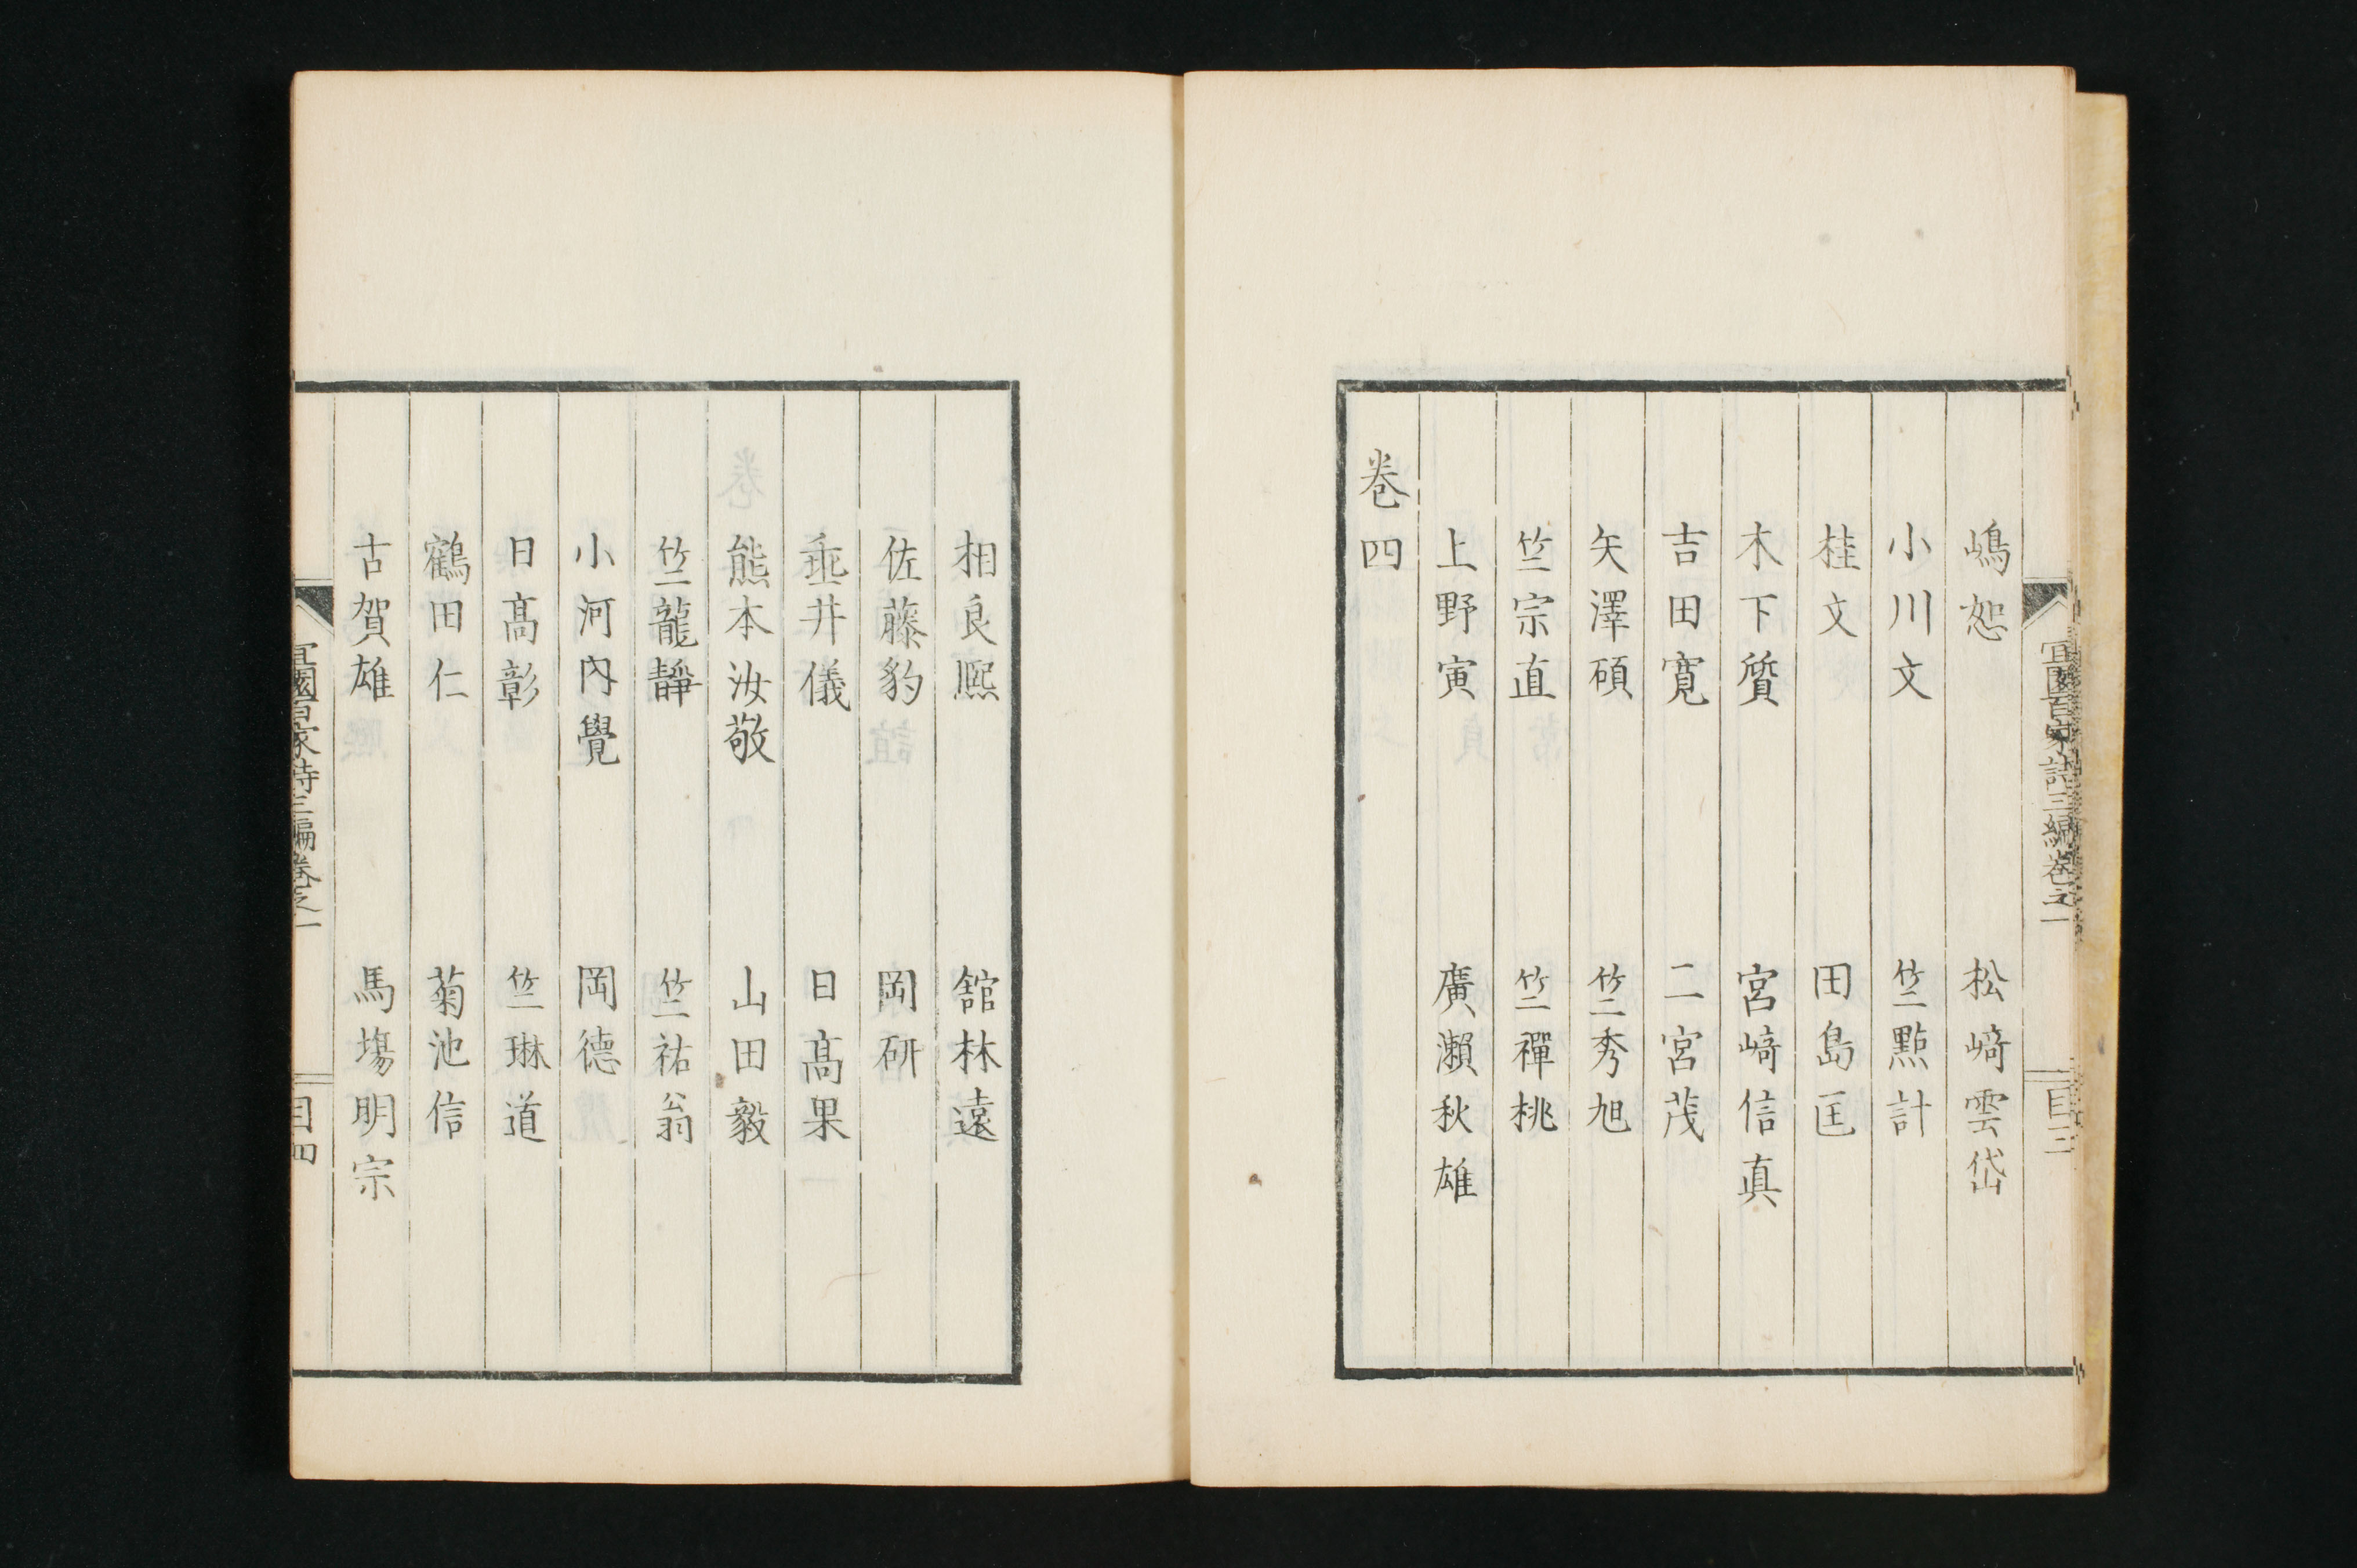 宜園百家詩三編卷之一
目三
嶋恕　松﨑雲岱
小川文　竺點計
桂文　田島匡
木下質　宮﨑信真
吉田寬　二宮茂
矢澤碩　竺秀旭
竺宗直　竺禪桃
上野寅　廣瀬秋雄
卷四
相良熈　舘林遠
佐藤豹　岡研
垂井儀　日髙果
熊本汝敬　山田毅
竺龍靜　竺祐翁
小河內覺　岡德
日髙彰　竺琳道
鶴田仁　菊池信
古賀雄　馬塲明宗
宜園百家詩三編卷之一
目四